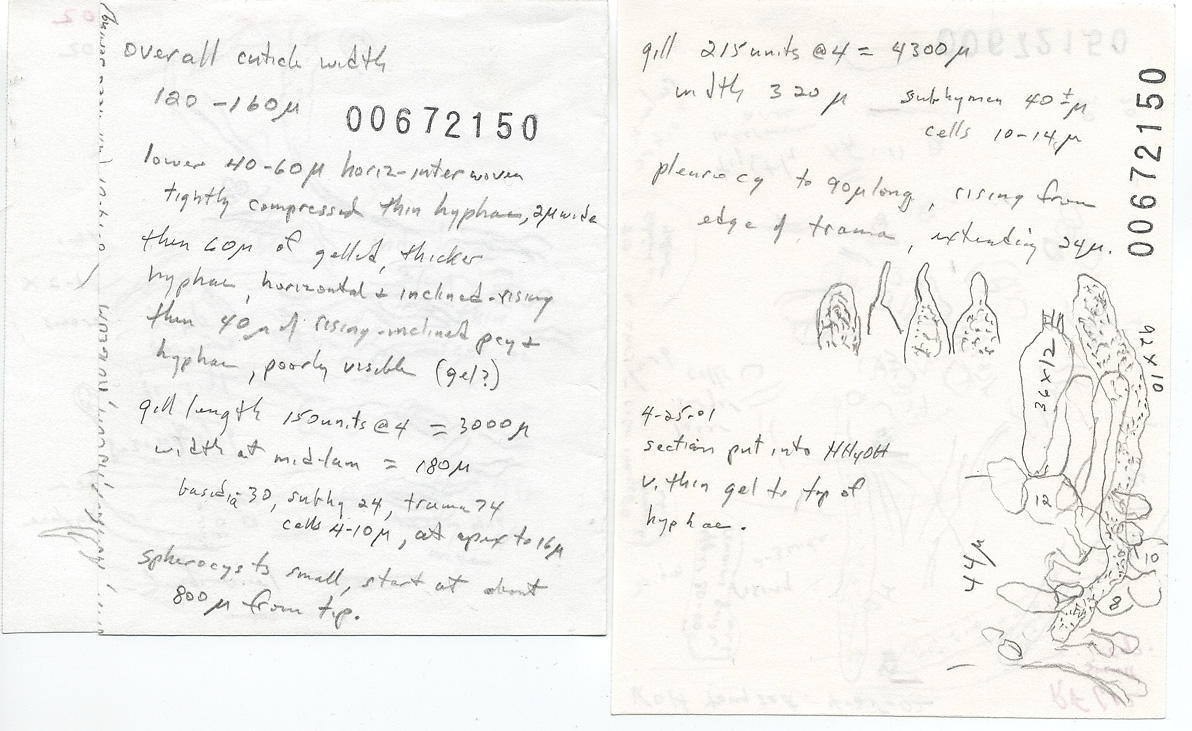 overall cuticle width
120 - 160µ
00672150
lower 40-60µ horiz-interwoven
tightly compressed thin hyphae, 2µ wide
then 60µ of gelled, thicker
hyphae, horizontal & inclined-rising
then 40µ of rising-inclined pcy &
hyphae, poorly visible (gel?)
gill length 150 units @ 4 = 3000µ
width at mid-lam = 180µ
basidia 30, subhy 24, trama 74
cells 4-10µ, at apex to 16µ
spherocysts small, start at about
800µ from tip.
gill 215 units @ 4 = 4300µ
width 320µ subhymen 40±µ
cells 10-14µ
00672150
pleurocy to 90µ long, rising from
edge of trama, extending 24µ.
36x12
10 x 92
4-25-01
section put into NH4OH
v. thin gel to top of
hyphae.
12
10
8
44µ